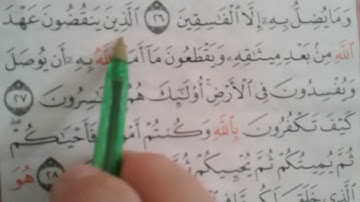 وَمَا يُضِلُّ بِهِۦٓ إِلَّا ٱلْفَـٰسِقِينَ ٢٦ ٱلَّذِينَ يَنقُضُونَ عَهْدَ
ٱللَّهِ مِنۢ بَعْدِ مِيثَـٰقِهِۦ وَيَقْطَعُونَ مَآ أَمَرَ ٱللَّهُ بِهِۦٓ أَن يُوصَلَ
وَيُفْسِدُونَ فِى ٱلْأَرْضِ أُو۟لَـٰٓئِكَ هُمُ ٱلْخَـٰسِرُونَ ٢٧
كَيْفَ تَكْفُرُونَ بِٱللَّهِ وَكُنتُمْ أَمْوَٰتًا فَأَحْيَـٰكُمْ
ثُمَّ يُمِيتُكُمْ ثُمَّ يُحْيِيكُمْ ثُمَّ ٢٨ هُوَ
ٱلَّذِى خَلَقَ لَكُم